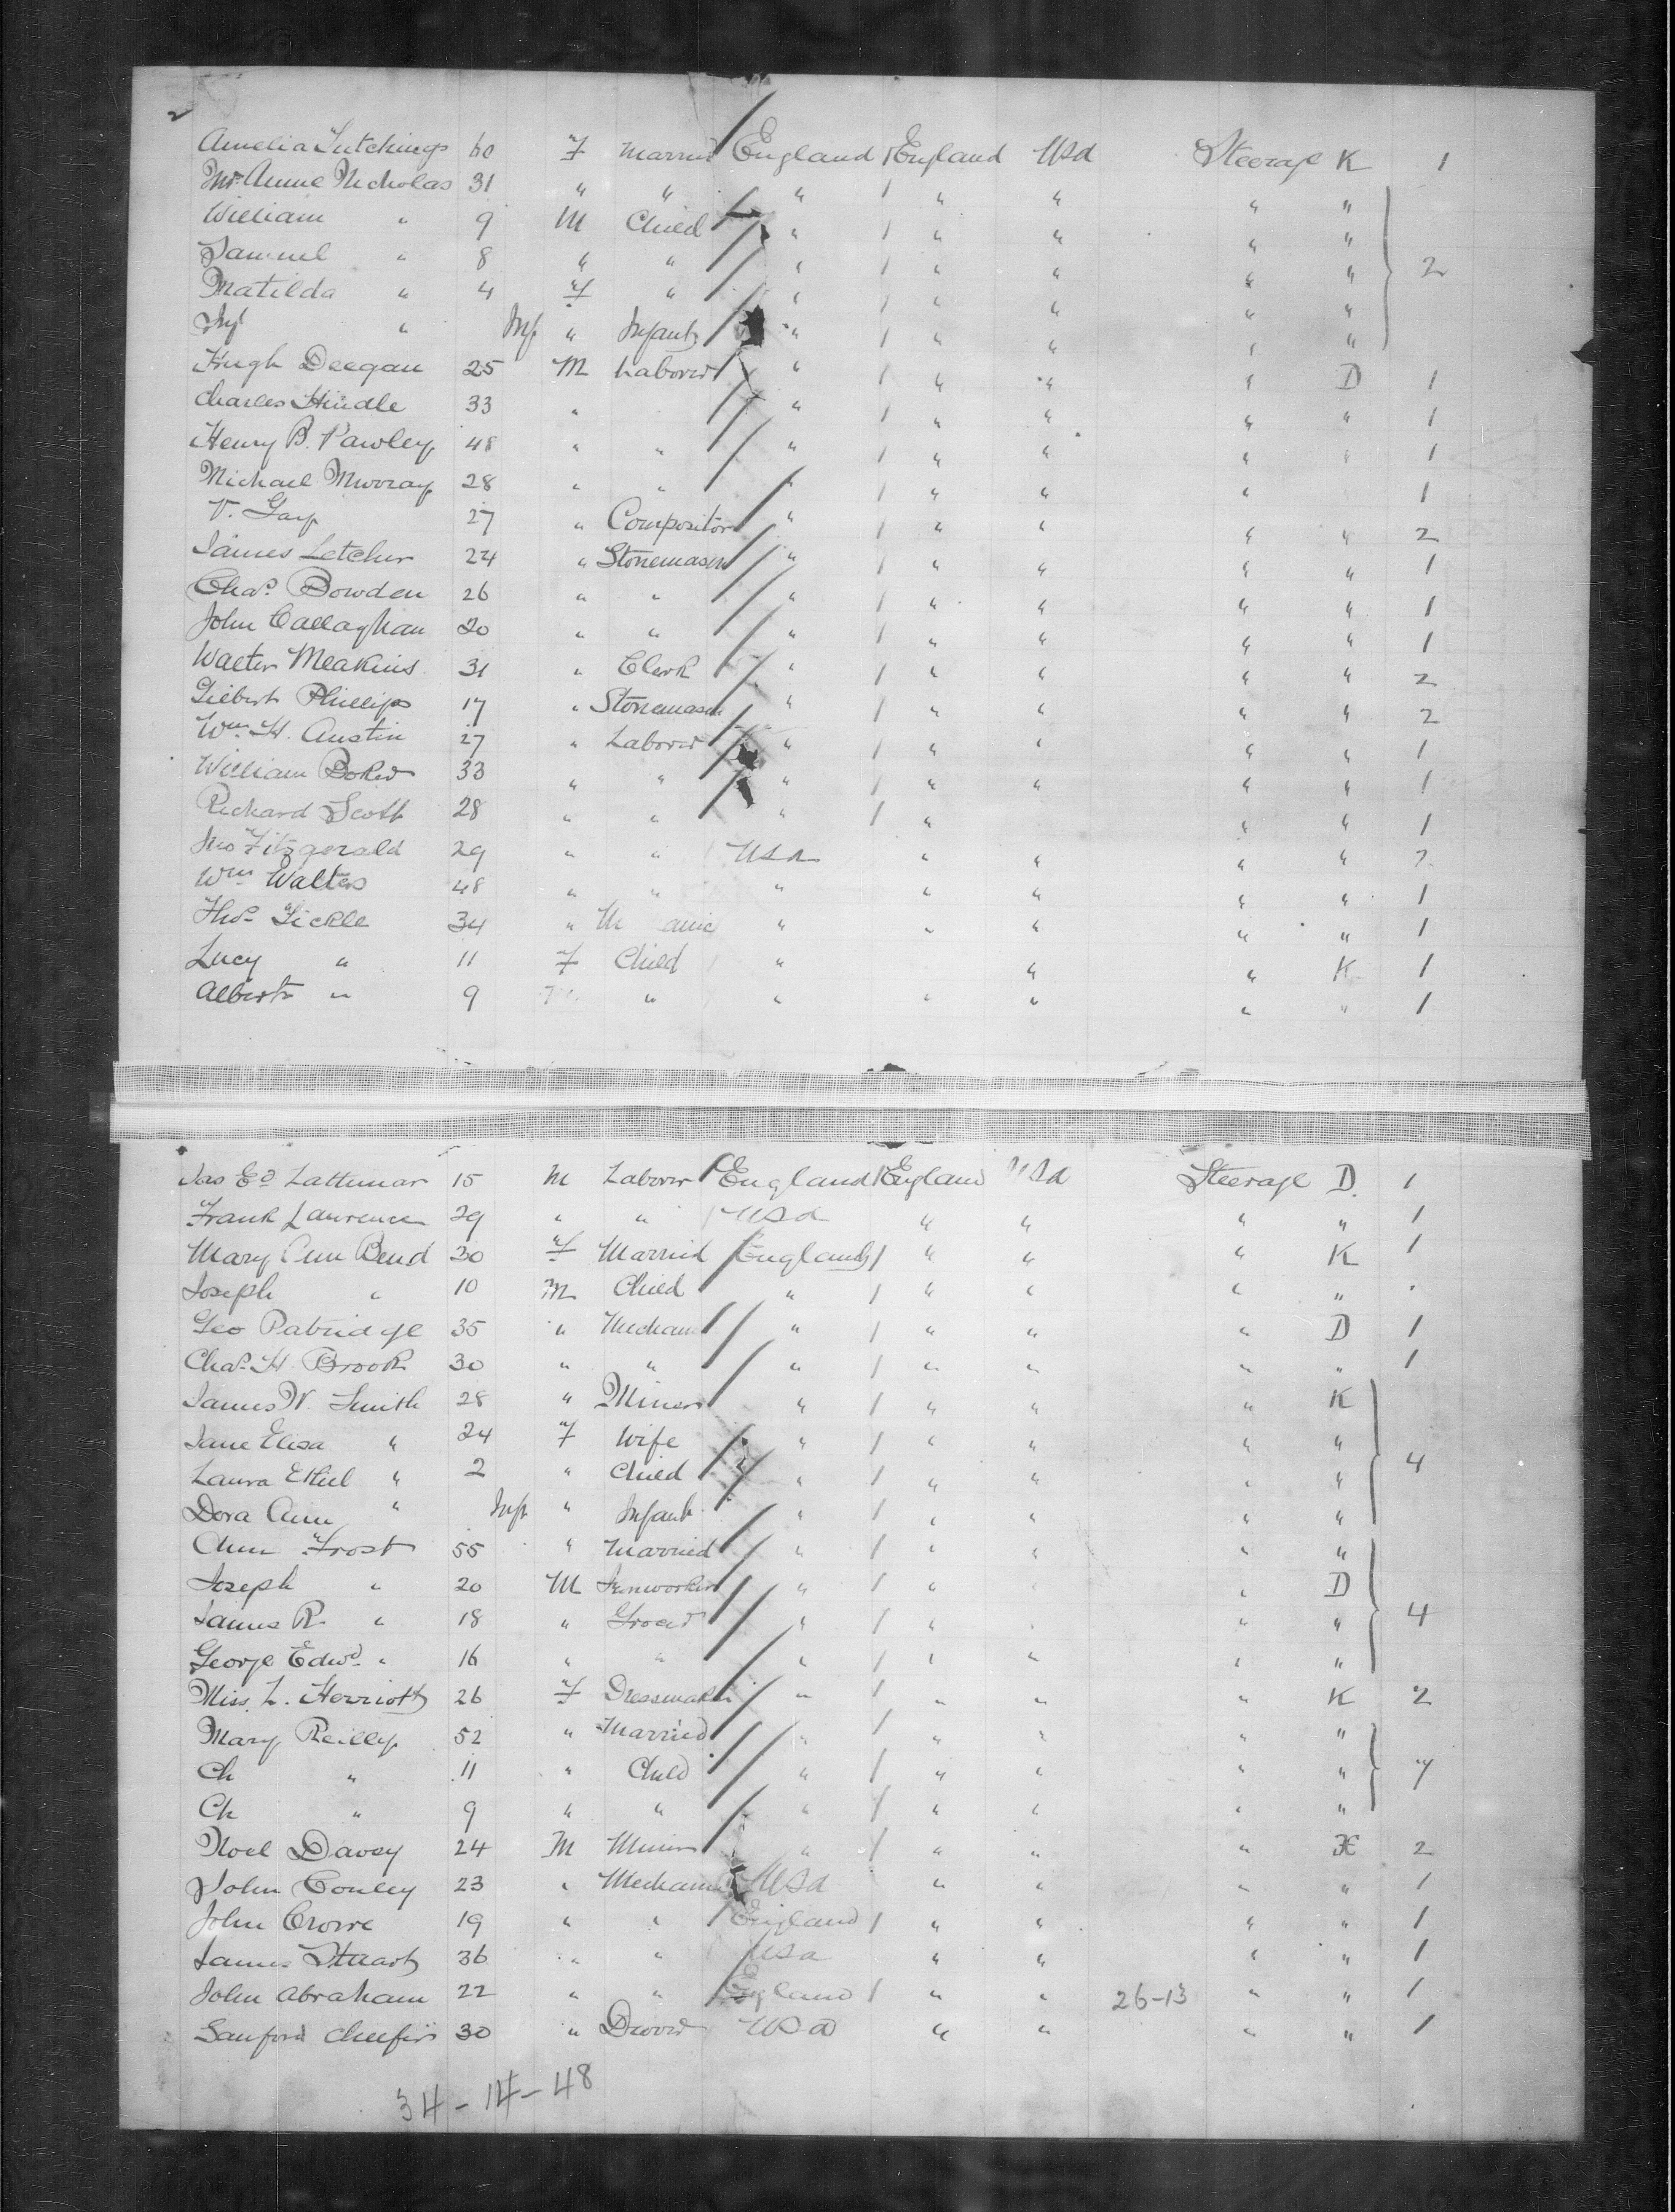 2
Amelia Hutchings 60 F Married England 1 England USA Steerage K 1
Mrs Annie Nicholas 31 " " " 1 " " " "
William " 9 M Child " 1 " " " "
Samuel " 8 " " " 1 " " " " 2
Matilda " 4 F " " 1 " " " "
Inft " Inft " Infant " 1 " " " "
Hugh Deegan 25 M Laborer " 1 " " " D 1
Charles Hindle 33 " " " 1 " " " " 1
Henry B. Pawley 48 " " " 1 " " " " 1
Michael Murray 28 " " " 1 " " " 1
V. Gay 27 " Compositor " 1 " " " " 2
James Letcher 24 " Stonemason " 1 " " " " 1
Chas. Bowden 26 " " " 1 " " " " 1
John Callaghan 20 " " " 1 " " " " 1
Walter Meakins 31 " Clerk " 1 " " " " 2
Gilbert Phillips 17 " Stonemason " 1 " " " " 2
Wm. H. Austin 27 " Laborer " 1 " " " " 1
William Baker 33 " " " 1 " " " " 1
Richard Scott 28 " " " 1 " " " 1
Jno Fitzgerald 29 " " USA " " " " 2
Wm Walters 48 " " " " " " " 1
Thos. Tickle 34 " M anic " " " " " 1
Lucy " 11 F Child " " " K 1
Albert " 9 " " " " " " 1
Jas Ed. Lattimar 15 M Laborer England 1 England USA Steerage D. 1
Frank Lawrence 29 " " USA " " " " 1
Mary Ann Bend 30 F Married England 1 " " " K 1
Joseph " 10 M Child " 1 " " " "
Geo Patridge 35 " Mechanic " 1 " " " D 1
Chas. H. Brook 30 " " " 1 " " " " 1
James W. Smith 28 " Miner " 1 " " " K
Jane Eliza " 24 F Wife " 1 " " " " 4
Laura Ethel " 2 " Child " 1 " " " "
Dora Ann " Inft " Infant " 1 " " " "
Ann Frost 55 " Married " 1 " " " "
Joseph " 20 M Ironworker " 1 " " D
James R. " 18 " Grocer " 1 " " " 4
George Edwd. " 16 " " " 1 " " " "
Miss L. Herriott 26 F Dressmaker " 1 " " " K 2
Mary Reilly 52 " Married " 1 " " " "
Ch " 11 " Child " 1 " " " " 7
Ch " 9 " " " 1 " " " "
Noel Davey 24 M Miner " 1 " " " K 2
John Conley 23 " Mechanic USA " " " " 1
John Crowe 19 " " England 1 " " " " 1
James Stuart 36 " " USA " " " " 1
John Abraham 22 " " England 1 " " 26-13 " " 1
Sanford 30 " Drover USA " " " " 1
34-14-48